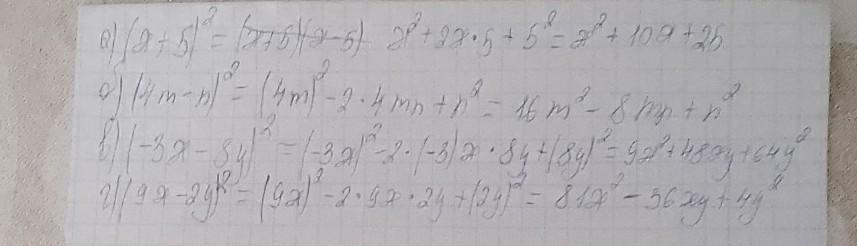 а) (x+5)² = (x+5)(x-5) x²+2x·5+5²=x²+10x+25
б) (4m-n)² = (4m)²-2·4mn+n² = 16m²-8mn+n²
в) (-3x-8y)² = (-3x)²-2·(-3)x·8y+(8y)²=9x²+48xy+64y²
г) (9x-2y)² = (9x)²-2·9x·2y+(2y)² = 81x²-36xy+4y²